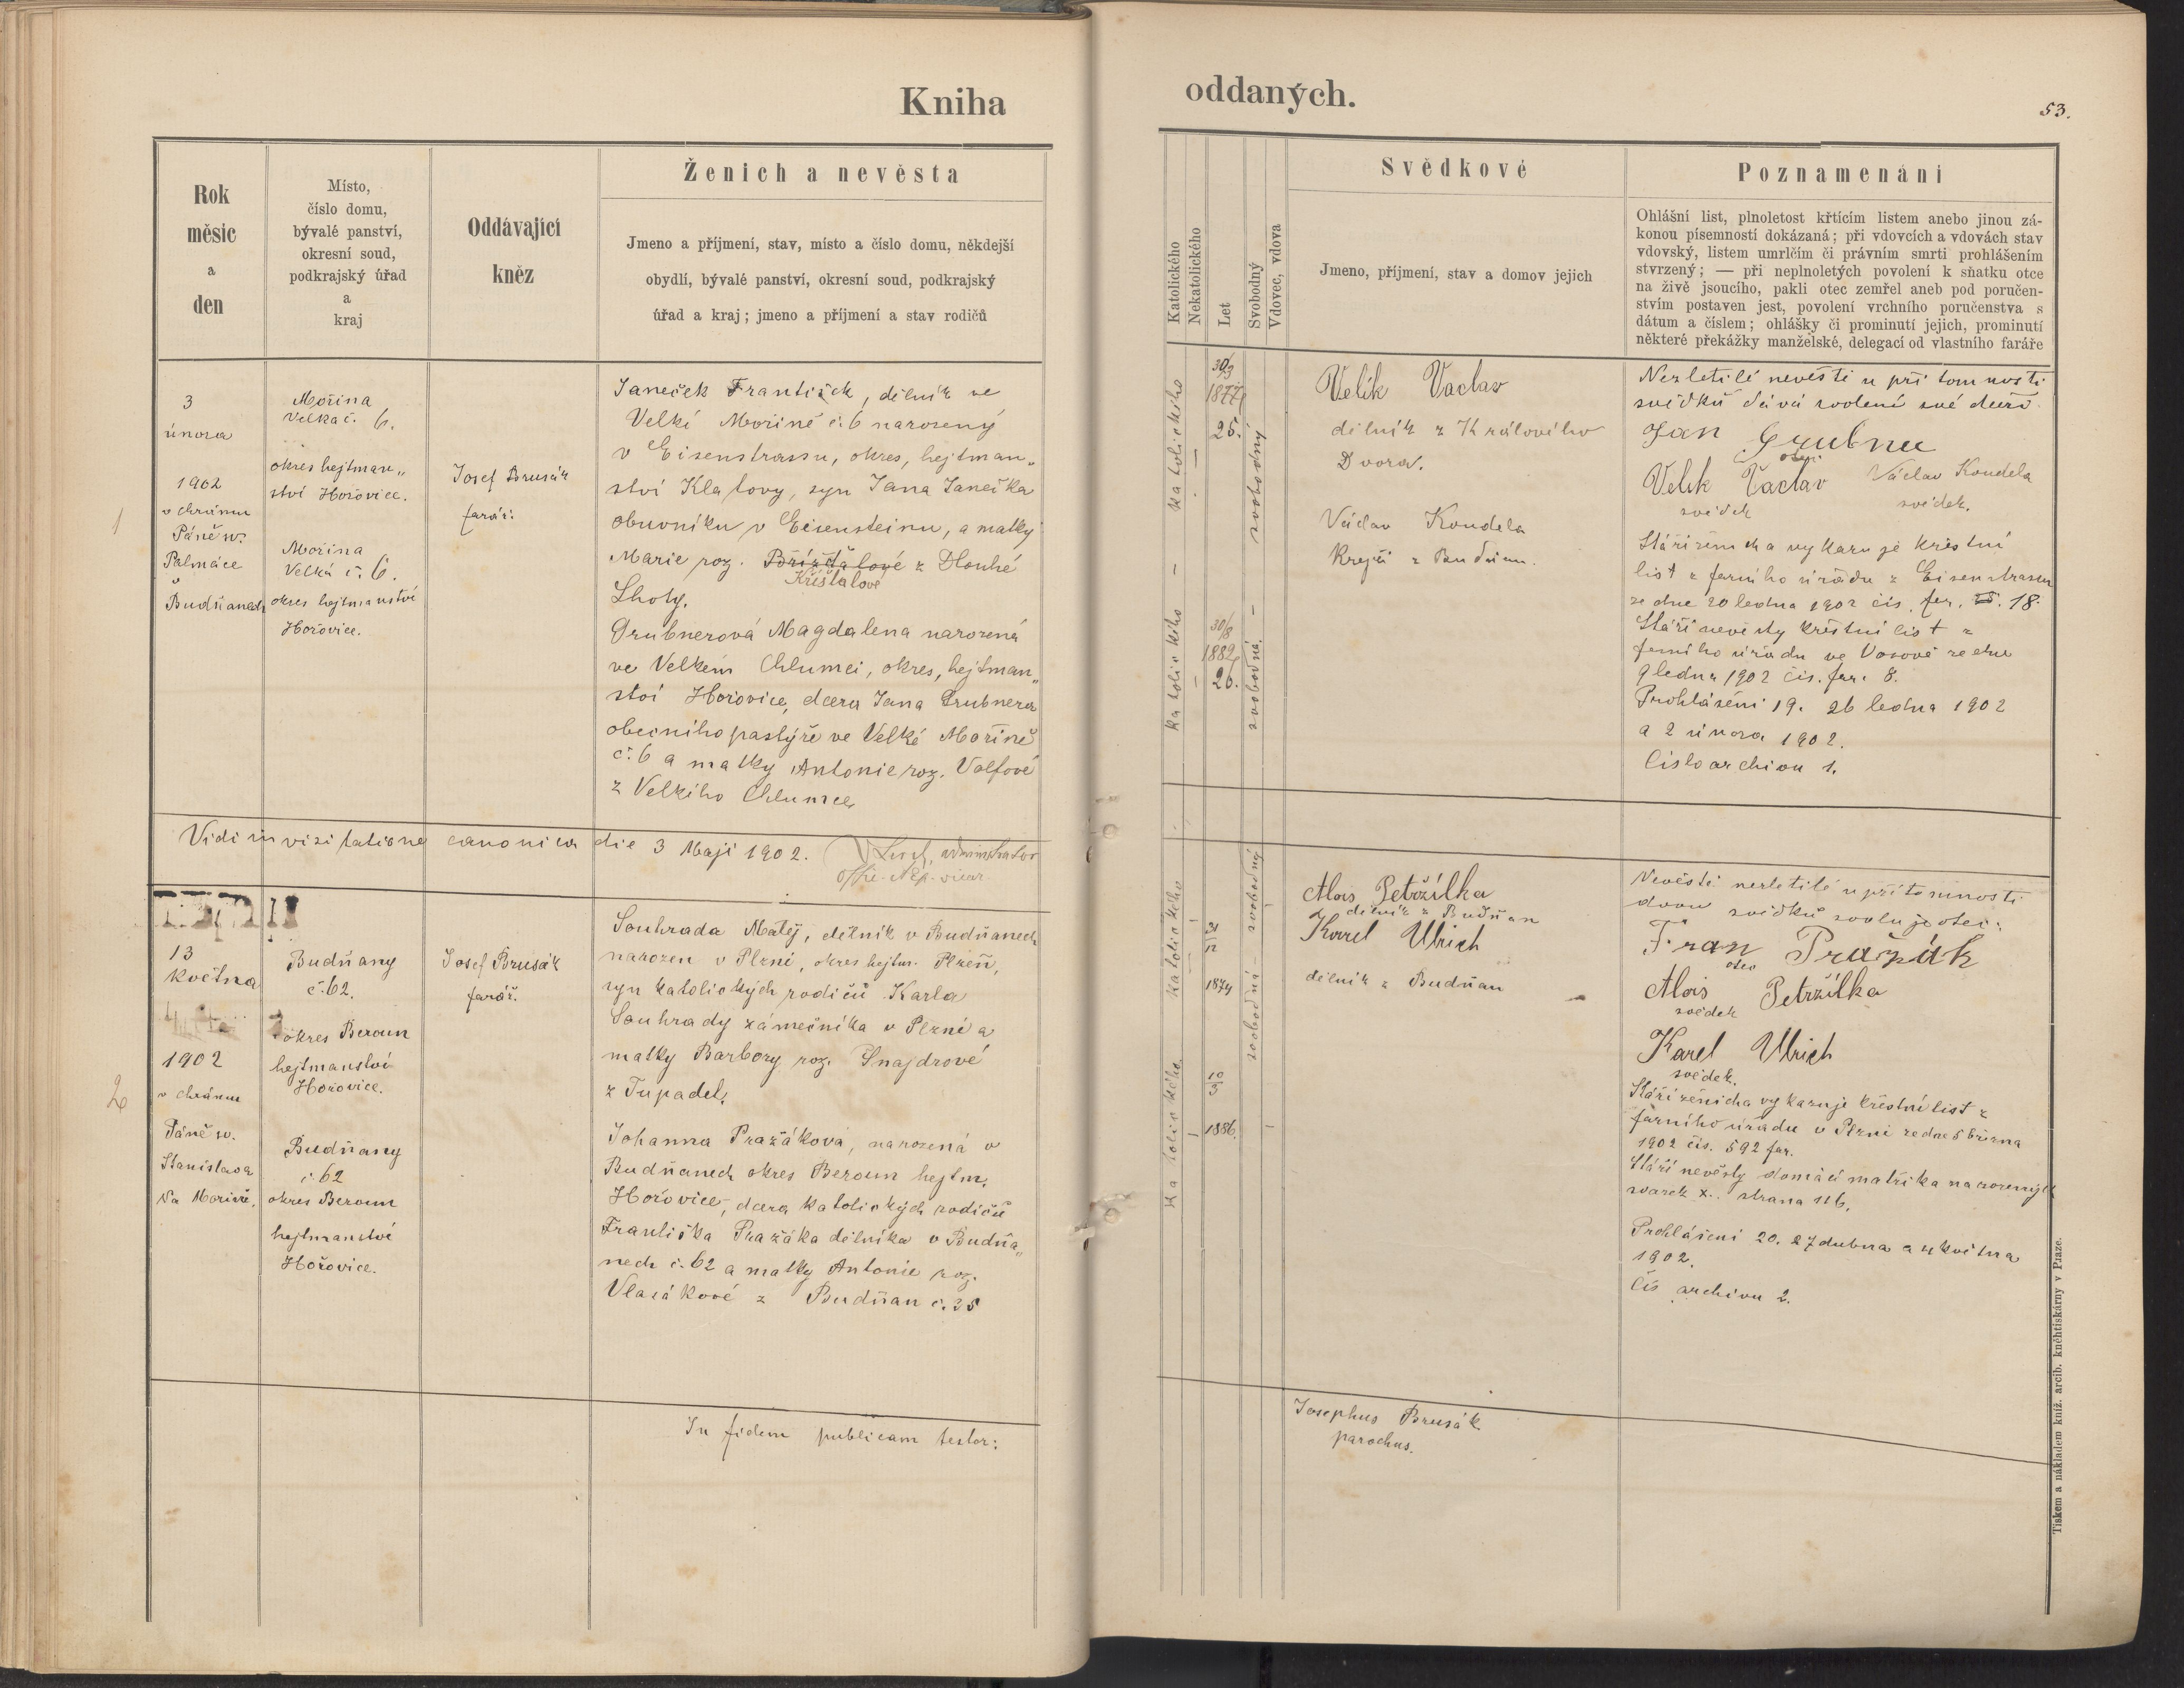 Kniha
oddaných.
53.
Rok
měsíc
a
den
Místo,
číslo domu,
bývalé panství,
okresní soud,
podkrajský úřad
a
kraj
Oddávající
kněz
Ženich a nevěsta
Jmeno a příjmení, stav, místo a číslo domu, někdejší
obydlí, bývalé panství, okresní soud, podkrajský
úřad a kraj; jmeno a příjmení a stav rodičů
Katolického
Nekatolického
Let
Svobodný
Vdovec, vdova
Svědkové
Jmeno, příjmení, stav a domov jejich
Poznamenání
Ohlášní list, plnoletost křtícím listem anebo jinou zá-
konou písemností dokázaná; při vdovcích a vdovách stav
vdovský, listem umrlčím či právním smrti prohlášením
stvrzený; — při neplnoletých povolení k sňatku otce
na živě jsoucího, pakli otec zemřel aneb pod poručen-
stvím postaven jest, povolení vrchního poručenstva s
dátum a číslem; ohlášky či prominutí jejich, prominutí
některé překážky manželské, delegací od vlastního faráře
1
3
února
1902
v chrámu
Páně sv.
Palmácе
v
Budňanech
Mořina
Velká č. 6.
okres hejtman„
ství Hořovice.
Mořina
Velká č. 6.
okres hejtmanství
Hořovice.
Josef Brusák
farář.
Janeček František, dělník ve
Velké Mořině č. 6 narozený
v Eisenstrassu, okres, hejtman„
ství Klatovy, syn Jana Janečka
obuvníka v Eisensteinu, a matky
Marie roz. Břížďalové z Dlouhé
Křišťalové
Lhoty.
Grubnerová Magdalena narozená
ve Velkém Chlumci, okres, hejtman„
ství Hořovice, dcera Jana Grubnera
obecního pastýře ve Velké Mořině
č. 6 a matky Antonie roz. Volfové
z Velkého Chlumce
katolického
katolického
30/3
1877
25.
30/8
1882
20.
svobodný
svobodná
Velík Vaclav
dělník z Králového
Dvora.
Václav Koudela
Krejčí z Budňan.
Nezletilé nevěstě u přítomnosti
svědků dává svolení své dceři
Jan Grubner
otec
Velik Vaclav
svědek
Václav Koudela
svědek.
Stáří ženicha vykazuje křestní
list z farního úřadu z Eisenstrassu
ze dne 20 ledna 1902 čís. far. 18.
Stáří nevěsty křestní list z
farního úřadu ve Vosově ze dne
9 ledna 1902 čís. far. 8.
Prohlášení 19. 26 ledna 1902
a 2 února 1902.
Číslo archivu 1.
Vidi in visitatione canonica die 3 Maji 1902.
administrator
2
13
května
1902
v chrámu
Páně sv.
Stanislava
Na Mořině.
Budňany
č. 62.
okres Beroun
hejtmanství
Hořovice.
Budňany
č. 62
okres Beroun
hejtmanství
Hořovice.
Josef Brusák
farář.
Souhrada Matěj, dělník v Budňanech
narozen v Plzni, okres hejtm. Plzeň,
syn katolických rodičů Karla
Souhrady zámečníka v Plzni a
matky Barbory roz. Šnajdrové
z Tupadel.
Johanna Pražáková, narozená v
Budňanech okres Beroun hejtm.
Hořovice, dcera katolických rodičů
Františka Pražáka dělníka v Budňa„
nech č. 62 a matky Antonie roz.
Vlasákové z Budňan č. 35
katolického
katolického
katolického
31
12
1874
10
3
1886.
svobodný
svobodná
Alois Petržílka
dělník z Budňan
Karel Ulrich
dělník z Budňan
Nevěstě nezletilé u přítomnosti
dvou svědků svoluje otec:
Fran Pražák
otec
Alois Petržílka
svědek
Karel Ulrich
svědek.
Stáří ženicha vykazuje křestní list z
farního úřadu v Plzni ze dne 5 března
1902 čís. 592 far.
Stáří nevěsty domácí matrika narozených
svazek X. strana 116.
Prohlášení 20. 27 dubna a 4 května
1902.
Čís archivu 2.
In fidem publicam testor:
Josephus Brusák
parochus.
Tiskem a nákladem kníž. arcib. kněhtiskárny v Praze.